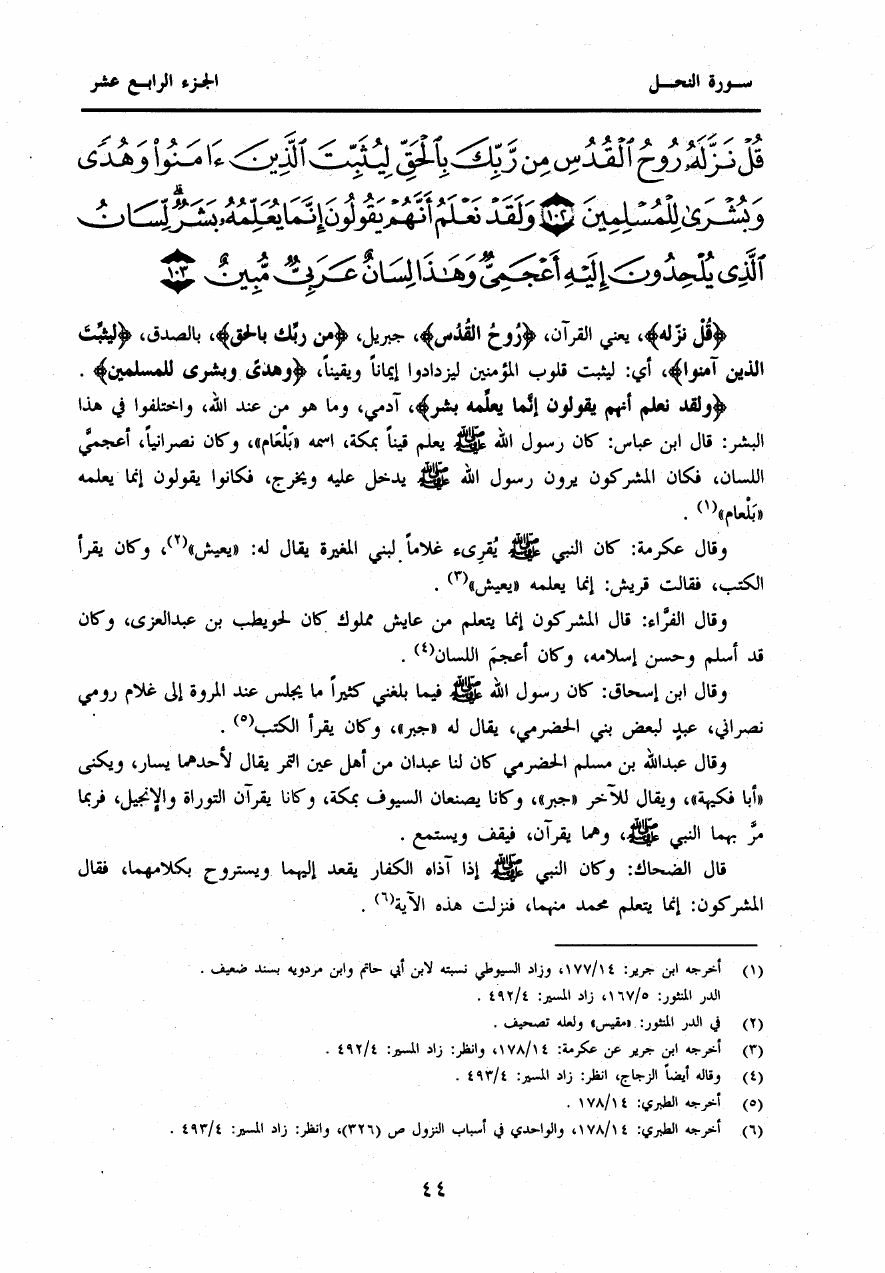 سورة النحل
الجزء الرابع عشر
قُلْ نَزَّلَهُ رُوحُ ٱلْقُدُسِ مِن رَّبِّكَ بِٱلْحَقِّ لِيُثَبِّتَ ٱلَّذِينَ ءَامَنُوا۟ وَهُدًى
وَبُشْرَىٰ لِلْمُسْلِمِينَ ١٠٢ وَلَقَدْ نَعْلَمُ أَنَّهُمْ يَقُولُونَ إِنَّمَا يُعَلِّمُهُۥ بَشَرٌ ۗ لِّسَانُ
ٱلَّذِى يُلْحِدُونَ إِلَيْهِ أَعْجَمِىٌّ وَهَـٰذَا لِسَانٌ عَرَبِىٌّ مُّبِينٌ ١٠٣
﴿قُلْ نزّله﴾، يعني القرآن، ﴿رُوحُ القُدُس﴾، جبريل، ﴿من ربّك بالحق﴾، بالصدق، ﴿ليثبِّتَ
الذين آمنوا﴾، أي: ليثبت قلوب المؤمنين ليزدادوا إيماناً ويقيناً، ﴿وهدىً وبشرى للمسلمين﴾ .
﴿ولقد نعلم أنهم يقولون إنَّما يعلّمه بشر﴾، آدمي، وما هو من عند الله، واختلفوا في هذا
البشر: قال ابن عباس: كان رسول الله ﷺ يعلم قيناً بمكة، اسمه «بَلْعَام»، وكان نصرانياً، أعجميَّ
اللسان، فكان المشركون يرون رسول الله ﷺ يدخل عليه ويخرج، فكانوا يقولون إنما يعلمه
«بَلْعام»(١) .
وقال عكرمة: كان النبي ﷺ يُقرىء غلاماً لبني المغيرة يقال له: «يعيش»(٢)، وكان يقرأ
الكتب، فقالت قريش: إنما يعلمه «يعيش»(٣) .
وقال الفرَّاء: قال المشركون إنما يتعلم من عايش مملوك كان لحويطب بن عبدالعزى، وكان
قد أسلم وحسن إسلامه، وكان أعجمَ اللسان(٤) .
وقال ابن إسحاق: كان رسول الله ﷺ فيما بلغني كثيراً ما يجلس عند المروة إلى غلام رومي
نصراني، عبدٍ لبعض بني الحضرمي، يقال له «جبر»، وكان يقرأ الكتب(٥) .
وقال عبدالله بن مسلم الحضرمي كان لنا عبدان من أهل عين التمر يقال لأحدهما يسار، ويكنى
«أبا فكيهة»، ويقال للآخر «جبر»، وكانا يصنعان السيوف بمكة، وكانا يقرآن التوراة والإنجيل، فربما
مرَّ بهما النبي ﷺ، وهما يقرآن، فيقف ويستمع .
قال الضحاك: وكان النبي ﷺ إذا آذاه الكفار يقعد إليهما ويستروح بكلامهما، فقال
المشركون: إنما يتعلم محمد منهما، فنزلت هذه الآية(٦) .
(١) أخرجه ابن جرير: ١٧٧/١٤، وزاد السيوطي نسبته لابن أبي حاتم وابن مردويه بسند ضعيف .
الدر المنثور: ١٦٧/٥، زاد المسير: ٤٩٢/٤ .
(٢) في الدر المنثور: «مقيس» ولعله تصحيف .
(٣) أخرجه ابن جرير عن عكرمة: ١٧٨/١٤، وانظر: زاد المسير: ٤٩٢/٤ .
(٤) وقاله أيضاً الزجاج، انظر: زاد المسير: ٤٩٣/٤ .
(٥) أخرجه الطبري: ١٧٨/١٤ .
(٦) أخرجه الطبري: ١٧٨/١٤، والواحدي في أسباب النزول ص (٣٢٦)، وانظر: زاد المسير: ٤٩٣/٤ .
٤٤